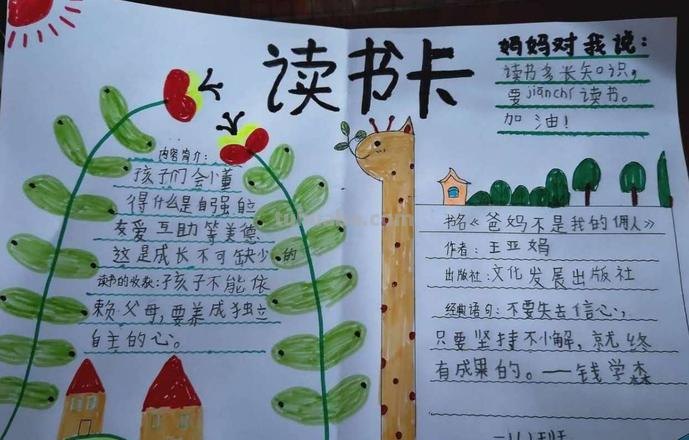 读书卡
妈妈对我说：
读书多长知识，
要jianchi读书。
加油！
内容简介：
孩子们会懂
得什么是自强自立
友爱互助等美德
这是成长不可缺少的
读书的收获：孩子不能依
赖父母，要养成独立
自主的心。
书名《爸妈不是我的佣人》
作者：王亚妈
出版社：文化发展出版社
经典语句：不要失去信心，
只要坚持不小解，就终
有成果的。——钱学森